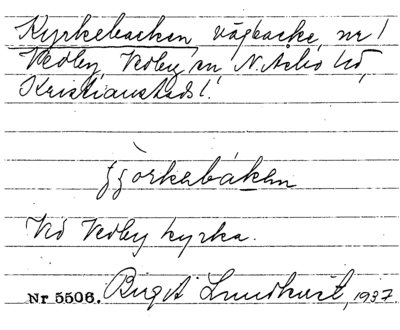 Kyrkebacken vägbacke, nr 1
Vedby, Vedby sn, N. Åsbo hd,
Kristianstads l.
kjörkebákən
Vid Vedby kyrka.
Nr 5506. Birgit Lundkvist, 1937.